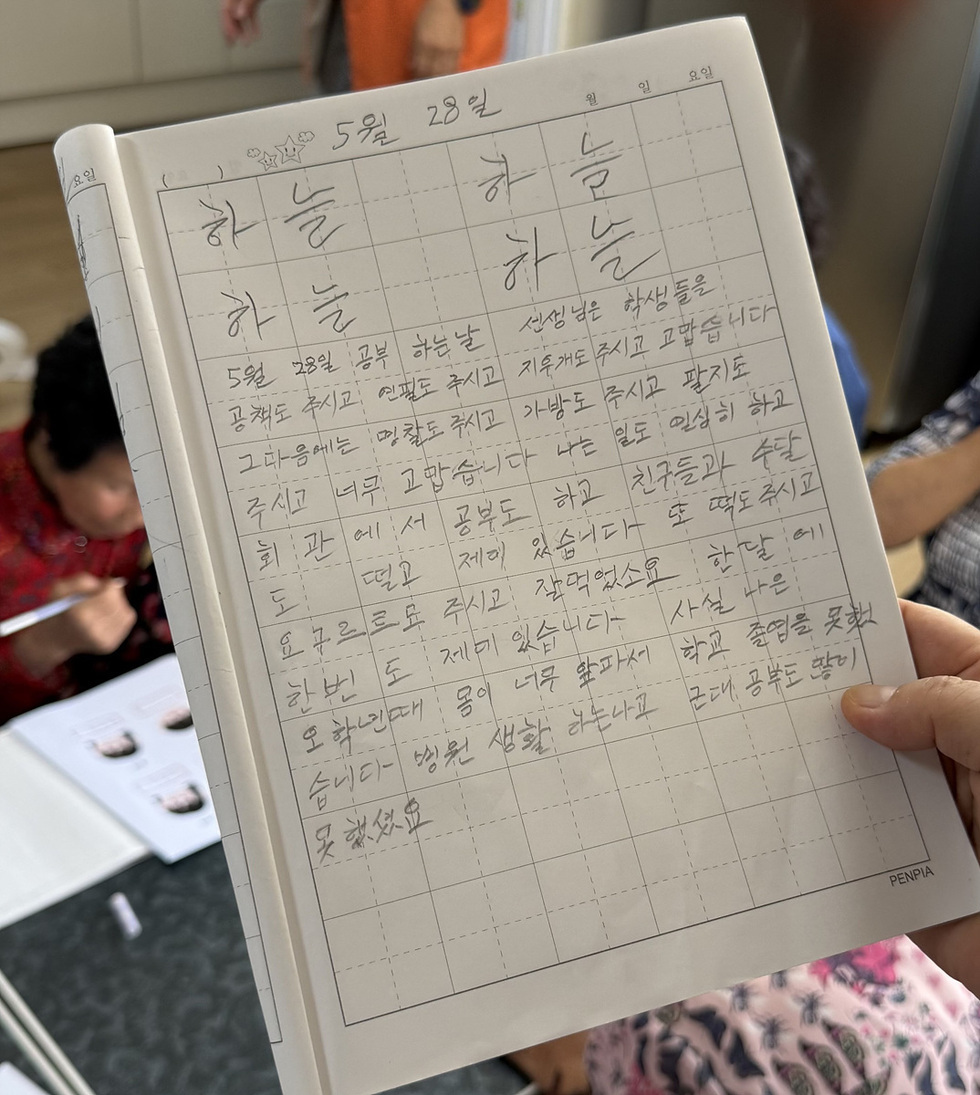 요일
5월 28일
월 일 요일
( )
하늘 하늘
하늘 하늘
5월 28일 공부 하는날 선생님은 학생들을
공책도 주시고 연필도 주시고 지우개도 주시고 고맙습니다
그다음에는 명찰도 주시고 가방도 주시고 팔지도
주시고 너무 고맙습니다 나는 일도 열심히 하고
회관에서 공부도 하고 친구들과 수달
도 떨고 제미 있습니다 또 떡도 주시고
요구르트도 주시고 잘먹었소요 한달에
한번도 제미 있습니다 사실 나은
오학년때 몸이 너무 앞파서 학교 졸업을 못했
습니다 병원 생활 하는나고 근대 공부도 많이
못했셨요
PENPIA